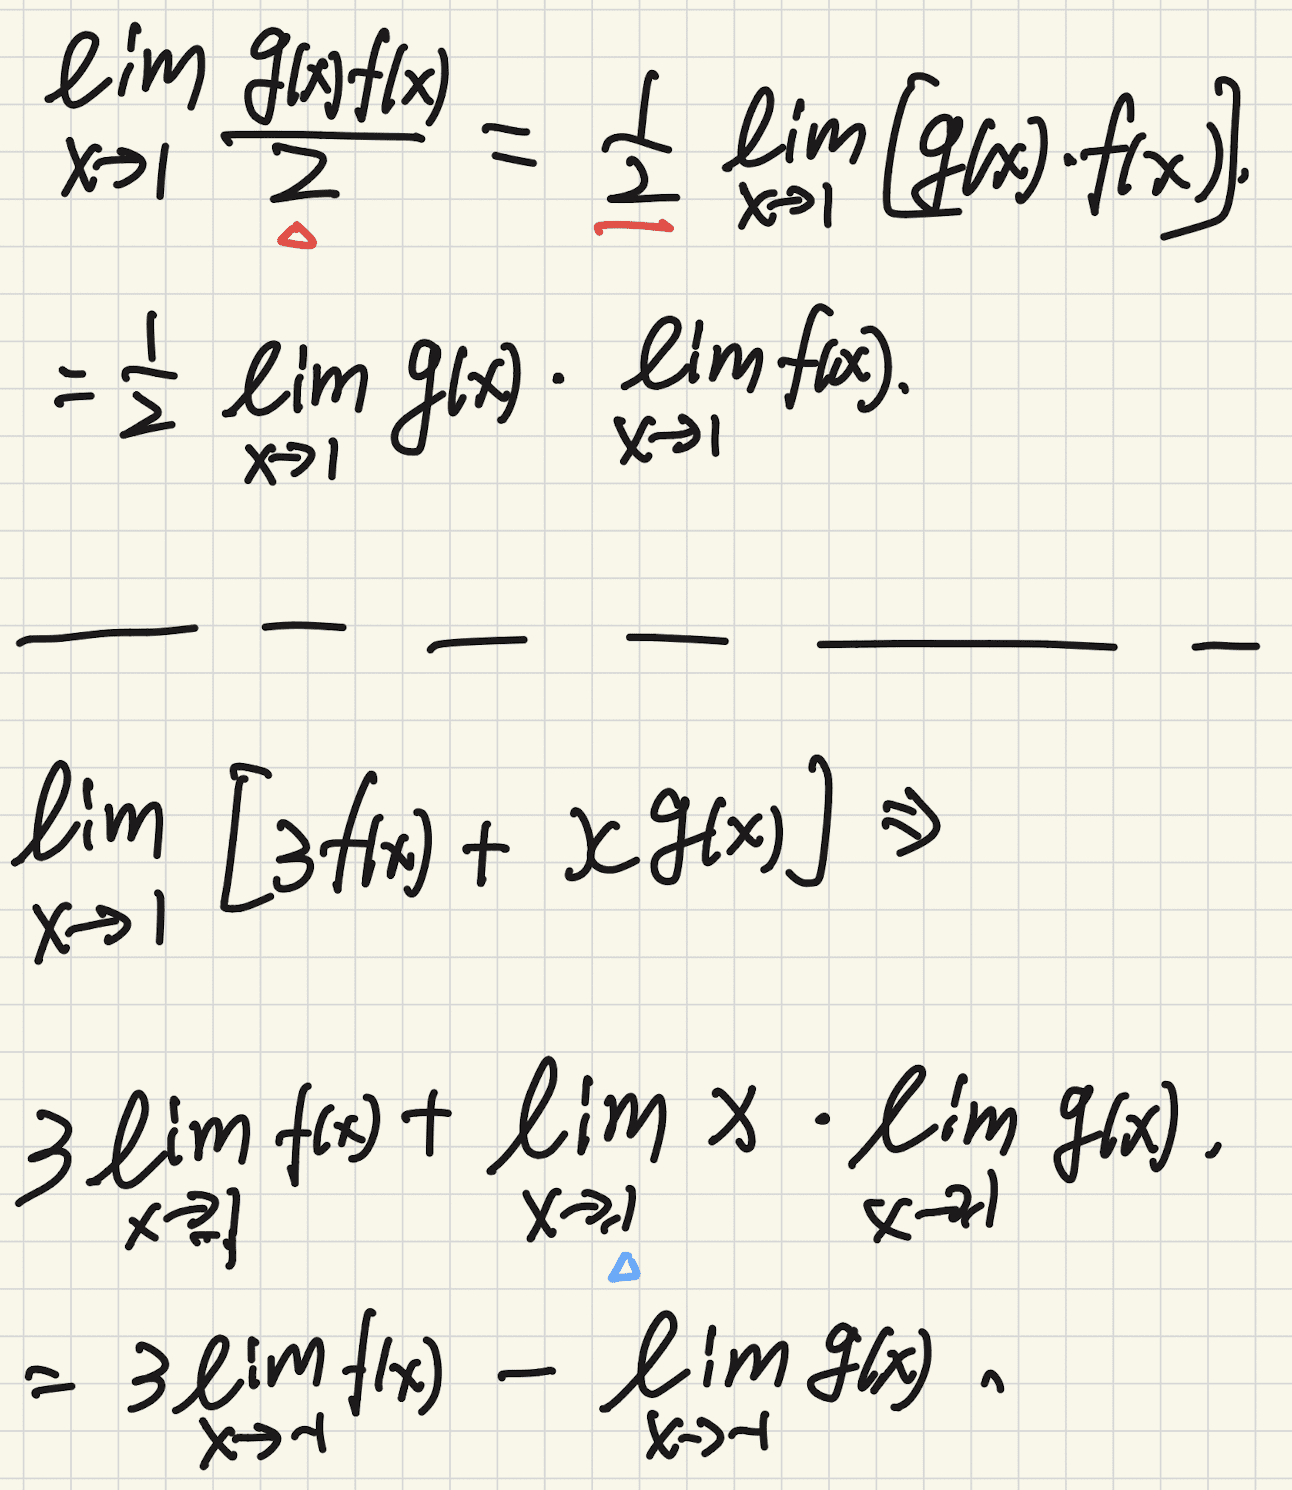 lim x→1 g(x)f(x)/2 = 1/2 lim x→1 [g(x)·f(x)].
= 1/2 lim x→1 g(x) · lim x→1 f(x).
lim x→1 [3f(x) + x g(x)] ⇒
3 lim x→-1 f(x) + lim x→-1 x · lim x→-1 g(x).
= 3 lim x→-1 f(x) − lim x→-1 g(x).